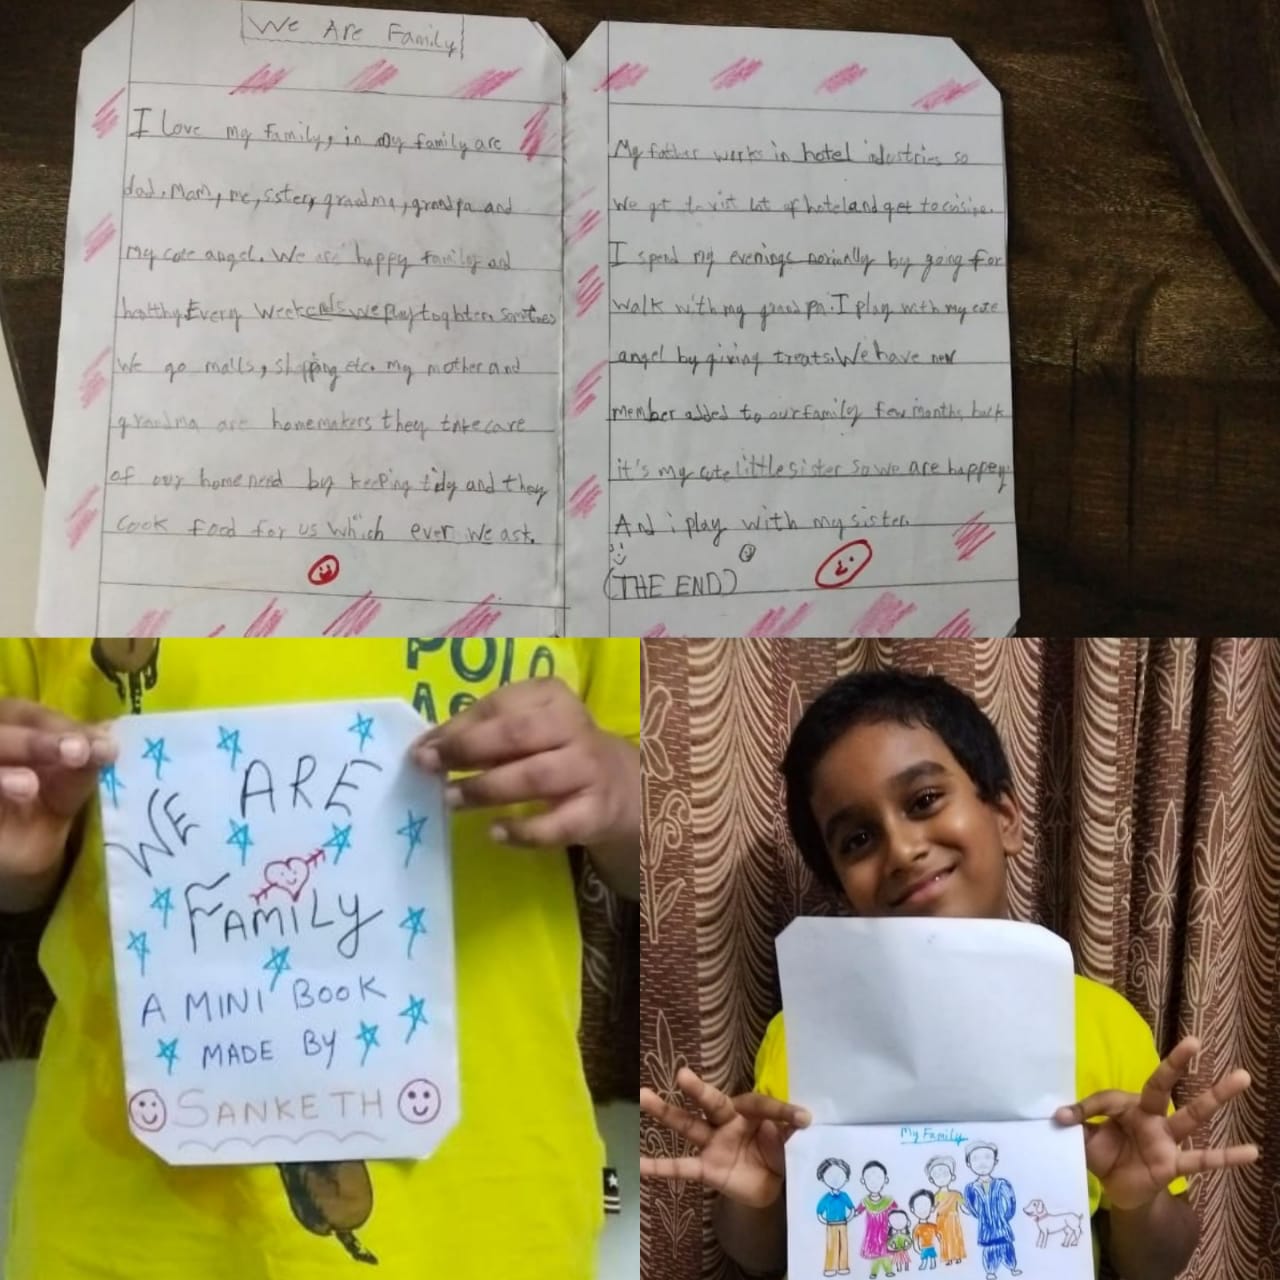 We Are Family
I Love my family, in my family are
dad, Mom, me, sster, gradma, grandpa and
my cute angel. We are happy family and
healthy. Every Weekends we play toghter. Somtimes
We go malls, shopping etc. my mother and
grandma are homemakers they take care
of our home need by keeping tidy and they
cook food for us which ever we ask.
My father works in hotel industries so
we get to visit lot of hotel and get to
I spend my evenings normally by going for
walk with my grand pa. I play with my cute
angel by giving treats. We have new
member added to our family few months back
it's my cute little sister so we are happey.
And i play with my sister.
(THE END)
POLO
WE ARE
FAMILY
A MINI BOOK
MADE BY
SANKETH
My Family